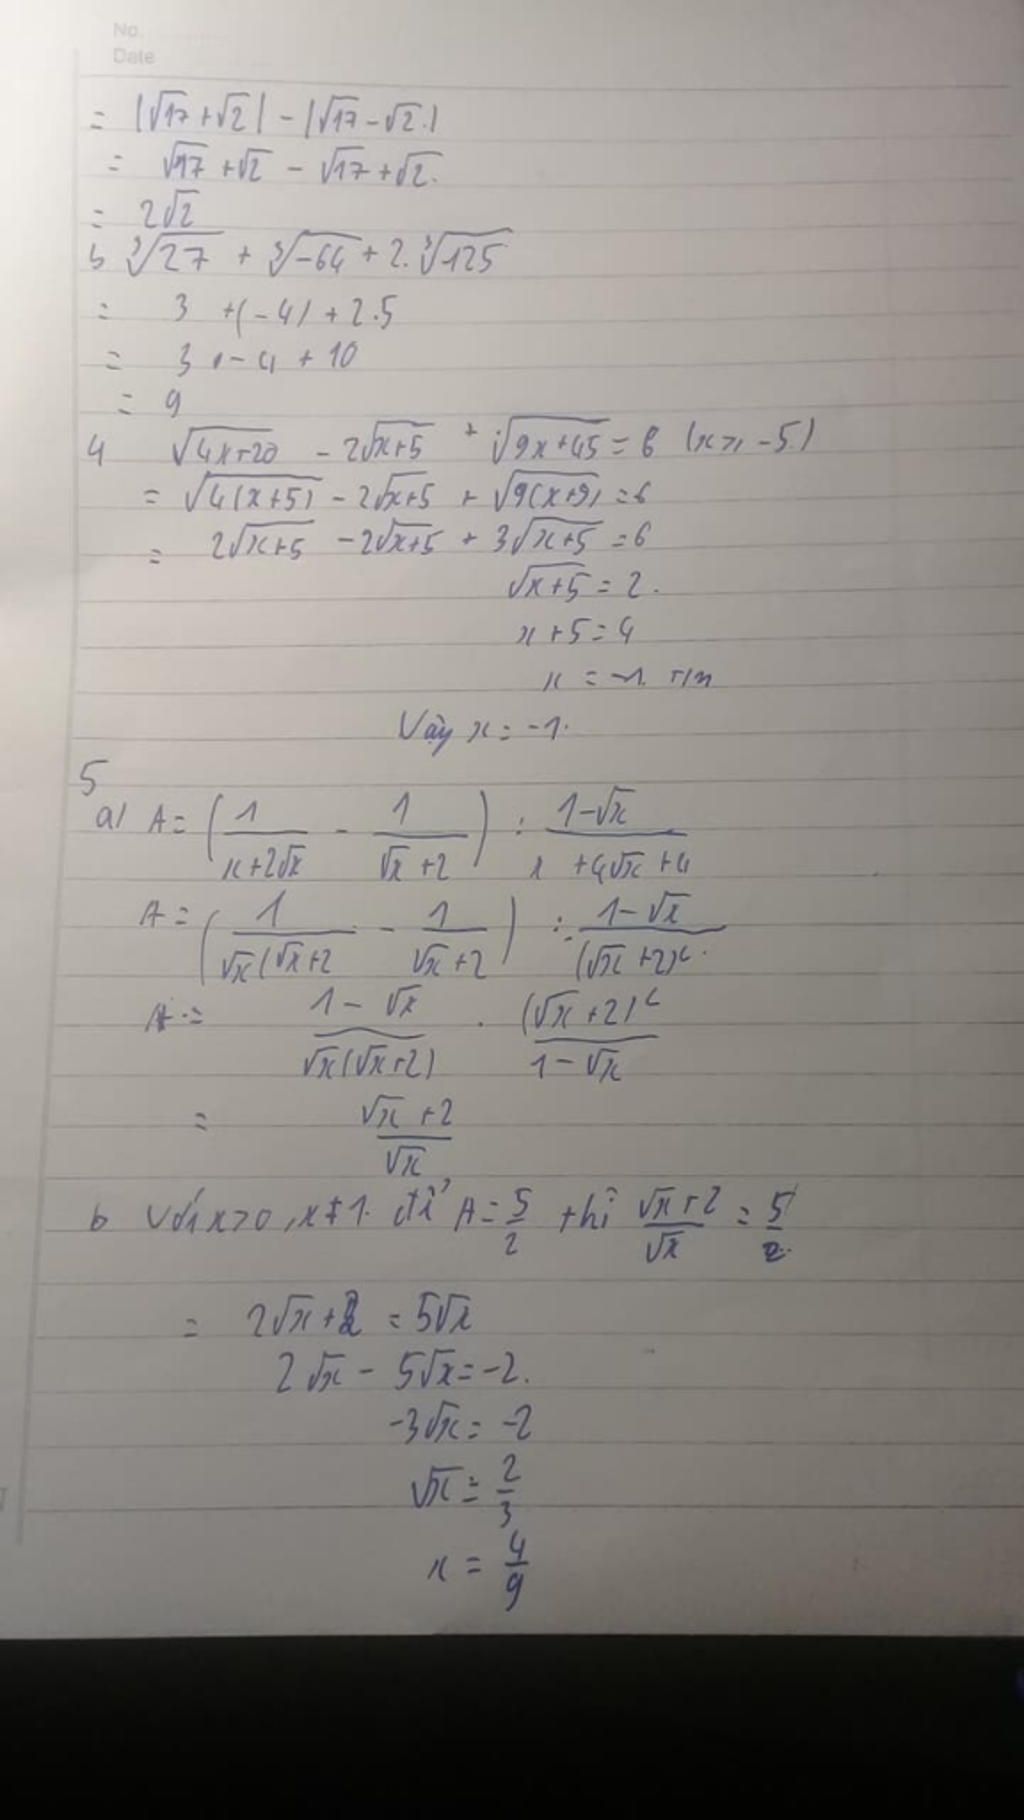 No.
Date
= |√17 + √2| - |√17 - √2.|
= √17 + √2 - √17 + √2.
= 2√2
b ∛27 + ∛-64 + 2.∛125
= 3 + (-4) + 2.5
= 3 - 4 + 10
= 9
4 √4x+20 - 2√x+5 + √9x+45 = 6 (x ≥ -5.)
= √4(x+5) - 2√x+5 + √9(x+9) = 6
= 2√x+5 - 2√x+5 + 3√x+5 = 6
√x+5 = 2.
x + 5 = 4
x = -1. T/m
Vậy x = -1.
5
a) A = (1/(x+2√x) - 1/(√x+2)) : (1-√x)/(x+4√x+4)
A = (1/(√x(√x+2) - 1/(√x+2)) : (1-√x)/(√x+2)².
A = (1-√x)/(√x(√x+2)) . (√x+2)²/(1-√x)
= (√x+2)/√x
b Với x>0, x≠1. để A = 5/2 thì (√x+2)/√x = 5/2.
= 2√x + 2 = 5√x
2√x - 5√x = -2.
-3√x = -2
√x = 2/3
x = 4/9